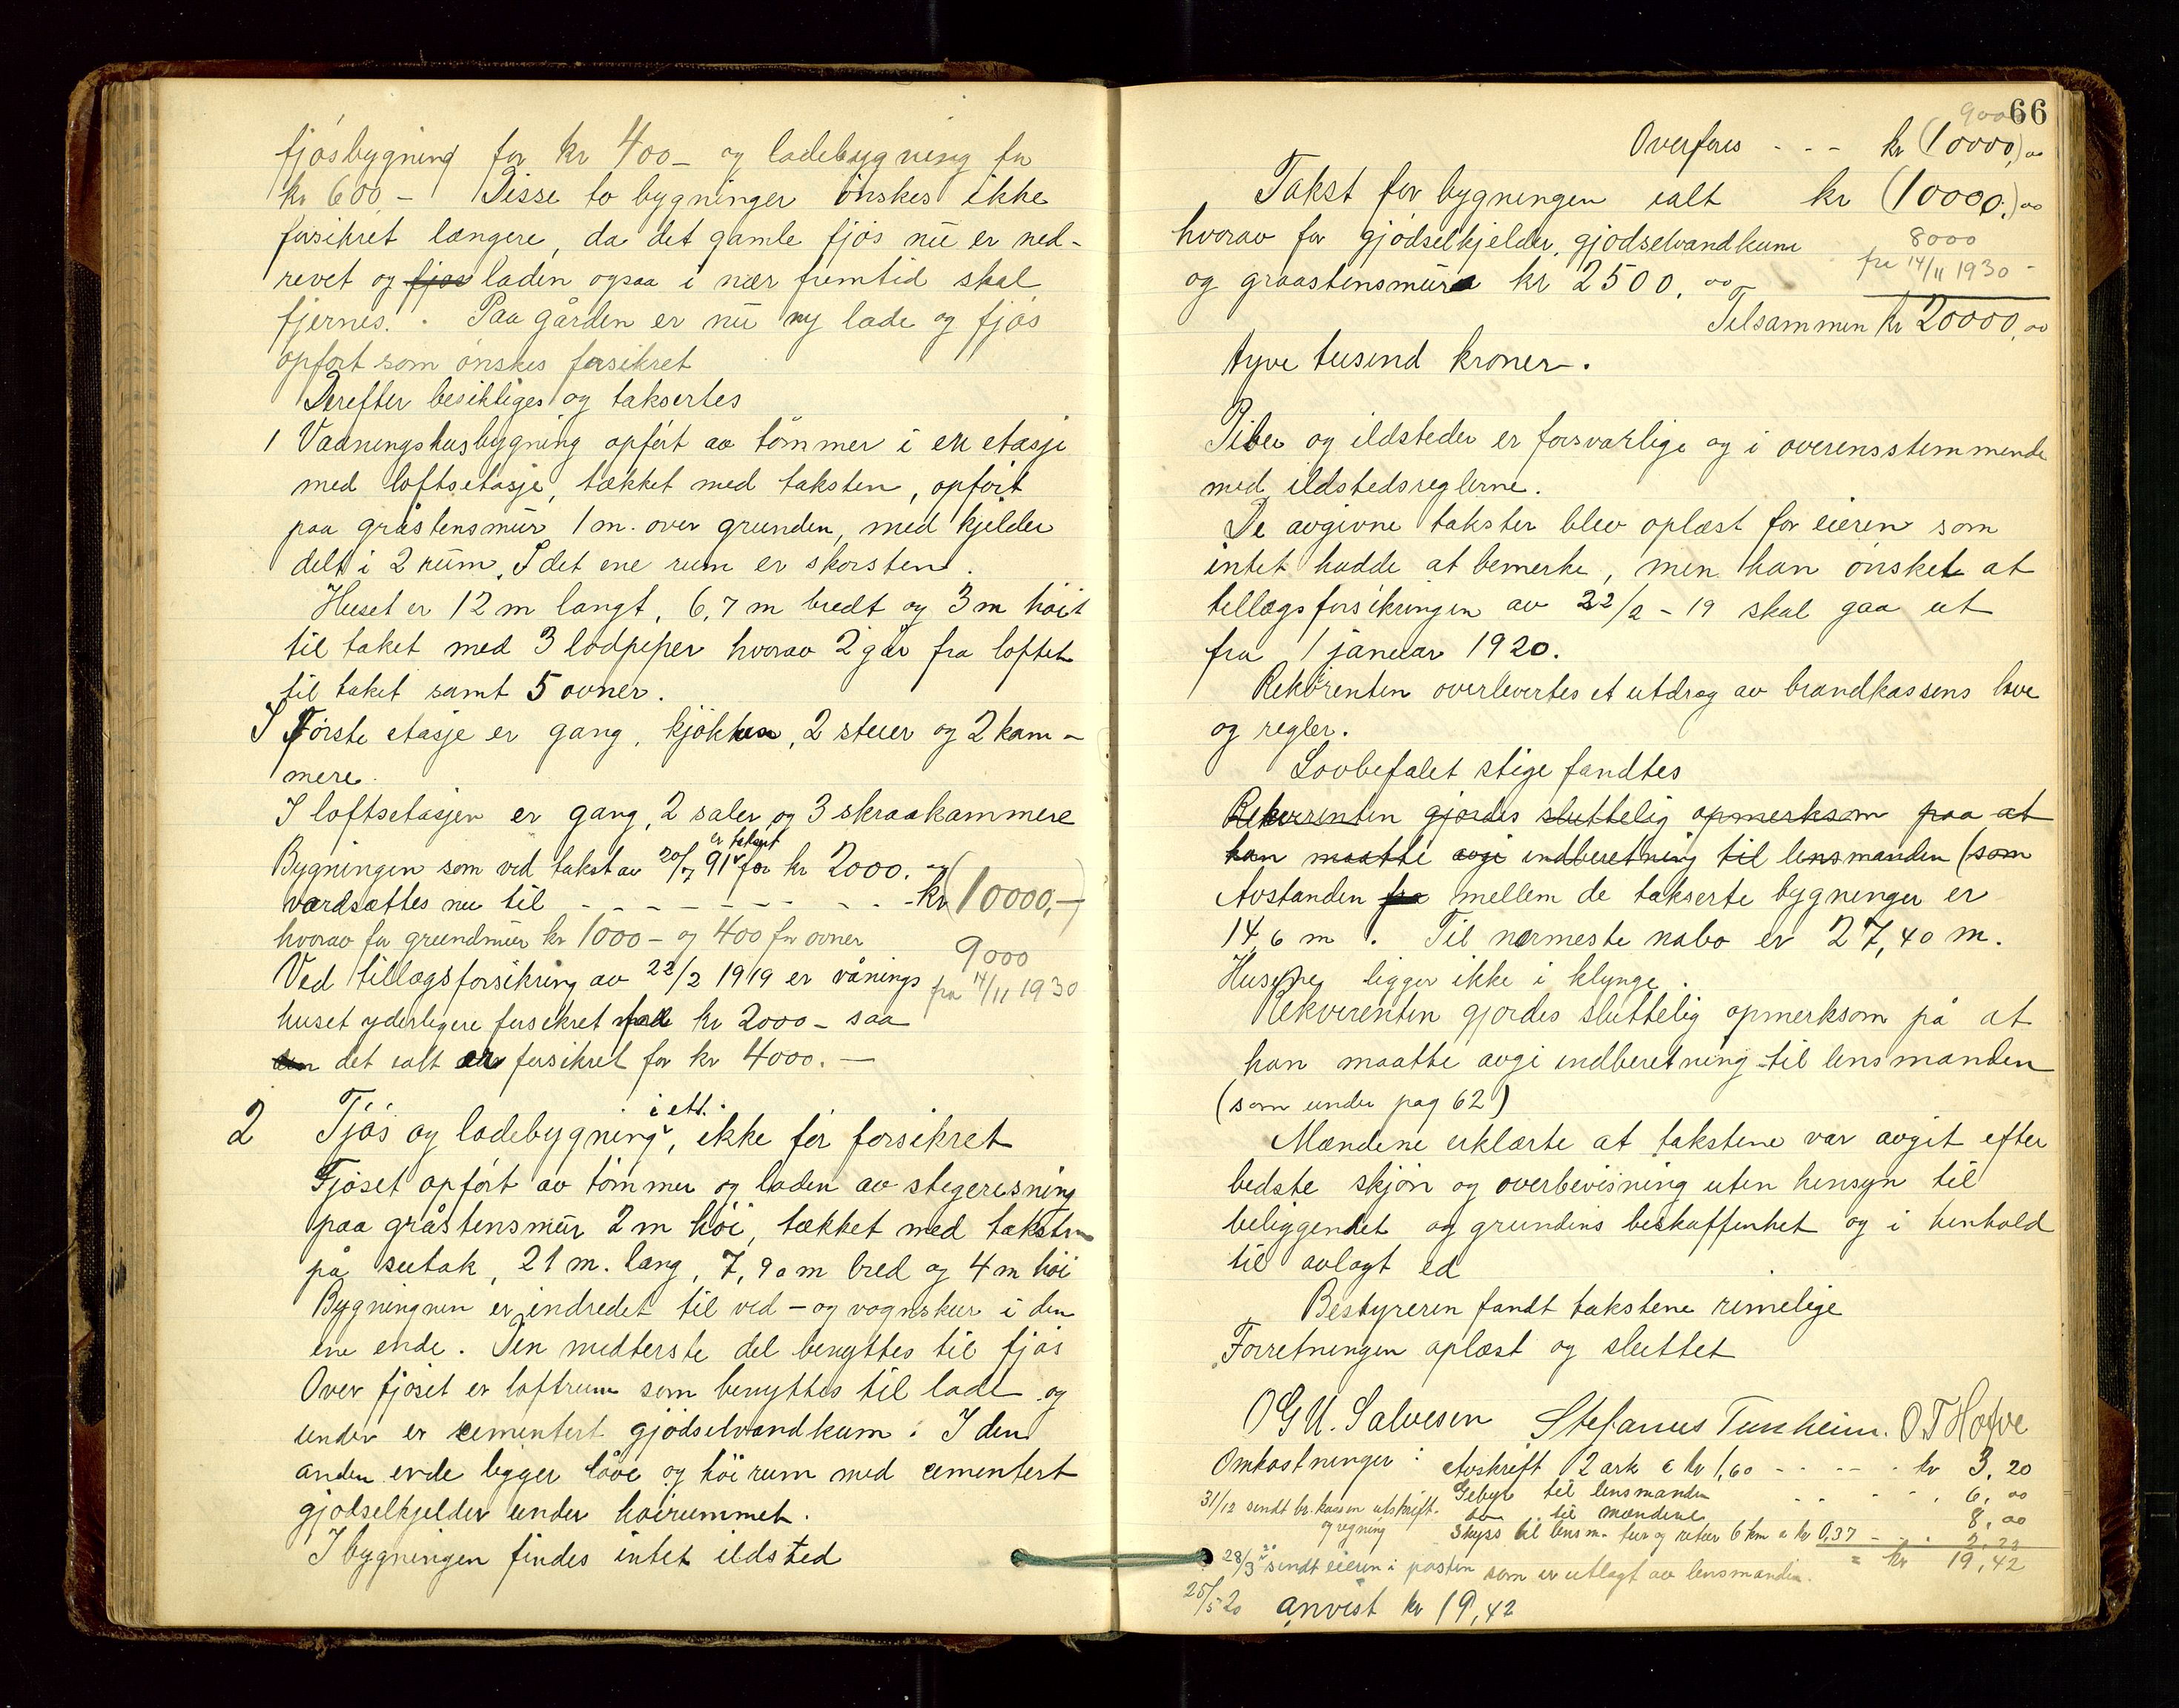 fjósbygning for kr 400- og ladebygning for
kr 600 - Disse to bygninger ónskes ikke
forsikret længere, da det gamle fjós nu er ned-
revet og fjós laden ogsaa i nær fremtid skal
fjernes. Paa gården er nu ny lade og fjós
opfort som ónskes forsikret
Derefter besiktiges og taksertes
1 Vaaningshusbygning opfórt av tómmer i en etasje
med loftsetasje, tækket med taksten, opfórt
paa gråstensmur 1 m. over grunden, med kjelder
delt i 2 rum. I det ene rum er skorsten.
Huset er 12 m langt, 6,7 m bredt og 3 m hóit
til taket med 3 lodpiper hvorav 2 går fra loftet
til taket samt 5 ovner.
I Fórste etasje er gang, kjókken, 2 stuer og 2 kam-
mere.
I loftsetasjen er gang, 2 saler og 3 skraakammere
er taksert
Bygningen som ved takst av 20/7 91 for kr 2000.
værdsættes nu til - - - - - - - - - kr (10000,-)
hvorav for grundmur kr 1000- og 400 for ovner
9000
Ved tillægsforsikring av 22/2 1919 er vånings
fra 14/11 1930
huset yderligere forsikret for kr 2000- saa
den det ialt er forsikret for kr 4000.-
2 Fjós og ladebygning i ett., ikke fór forsikret
Fjóset opfórt av tómmer og laden av stegeresning
paa gråstensmur 2 m hói, tækket med taksten
på sutak, 21 m. lang, 7,90 m bred og 4 m hói
Bygningnen er indredet til ved- og vognskur i den
ene ende. Den midterste del benyttes til fjós
Over fjóset er loftrum som benyttes til lade og
under er cementert gjódselvandkum. I den
anden ende ligger lóve og hóirum med cementert
gjódselkjelder under hóirummet.
I bygningen findes intet ildsted
9000
66
Overfóres - - - kr (10000,)00
Takst for bygningen ialt kr (10000.)00
hvorav for gjódselkjelder, gjódselvandkum
8000
fra 14/11 1930
og graastensmur kr 2500,00
Tilsammen kr 20000,00
tyve tusend kroner.
Piber og ildsteder er forsvarlige og i overensstemmende
med ildstedsreglerne.
De avgivne takster blev oplæst for eieren som
intet hadde at bemerke, men han ónsket at
tillægsforsikringen av 22/2 - 19 skal gaa ut
fra 1 januar 1920.
Rekvirenten overlevertes et utdrag av brandkassens love
og regler.
Lovbefalet stige fandtes
Rekvirenten gjordes sluttelig opmerksom paa at
han maatte avgi indberetning til lensmanden (som
Avstanden fra mellem de takserte bygninger er
14,6 m. Til nærmeste nabo er 27,40 m.
Husene ligger ikke i klynge.
Rekvirenten gjordes sluttelig opmerksom på at
han maatte avgi indberetning til lensmanden
(som under pag 62)
Mændene erklærte at takstene var avgit efter
bedste skjón og overbevisning uten hensyn til
beliggendet og grundens beskaffenhet og i henhold
til avlagt ed
Bestyreren fandt takstene rimelige
Forretningen oplæst og sluttet
O G U. Salvesen Stefanus Tunheim. O. T Hodne
Omkostninger: Avskrift 2 ark á kr 1,60 - - - - kr 3,20
Gebyr til lensmanden 6,00
31/12 sendt br. kassen utskrift do til mændene 8,00
og regning Skyss til lensm. tur og retur 6 km á kr 0,37 - - 2,22
= kr 19,42
28/3 20 sendt eieren i posten som er utlagt av lensmanden.
25/5 20 anvist kr 19,42